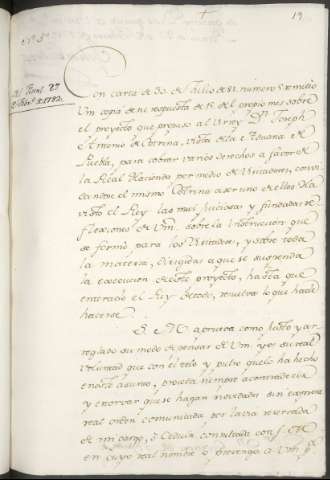 19
N.º 5.º
Con carta de 30. de Julio de 81. numero 5. remitió
Vm copia de su respuesta de 15. del propio mes sobre
el proyecto que propuso al Virrey Dn. Joseph
Antonio de Obrina, vista de la Aduana de
Puebla, para cobrar varios derechos a favor de
la Real Hacienda por medio de Visitadores,
el mismo Obrina
visto el Rey las mui juiciosas y fundadas re
flexiones de Vm. sobre la Instruccion que
se formó para los Visitadores, y sobre toda
la materia, dirigidas a que se suspenda
la execucion de este proyecto, hasta que
enterado el Rey de todo, resuelva lo que haia de
hacerse.
S. M. aprueba como justo y ar
reglado su modo de pensar de Vm. y es su real
voluntad que con el celo y pulso que lo ha hecho
en este asunto, proceda siempre
y estorvar que se hagan novedades sin expresa
real orden comunicada por la via reservada
de mi cargo, o Cedula consultada con S. M.
en cuyo real nombre lo prevengo a Vm. p.ª